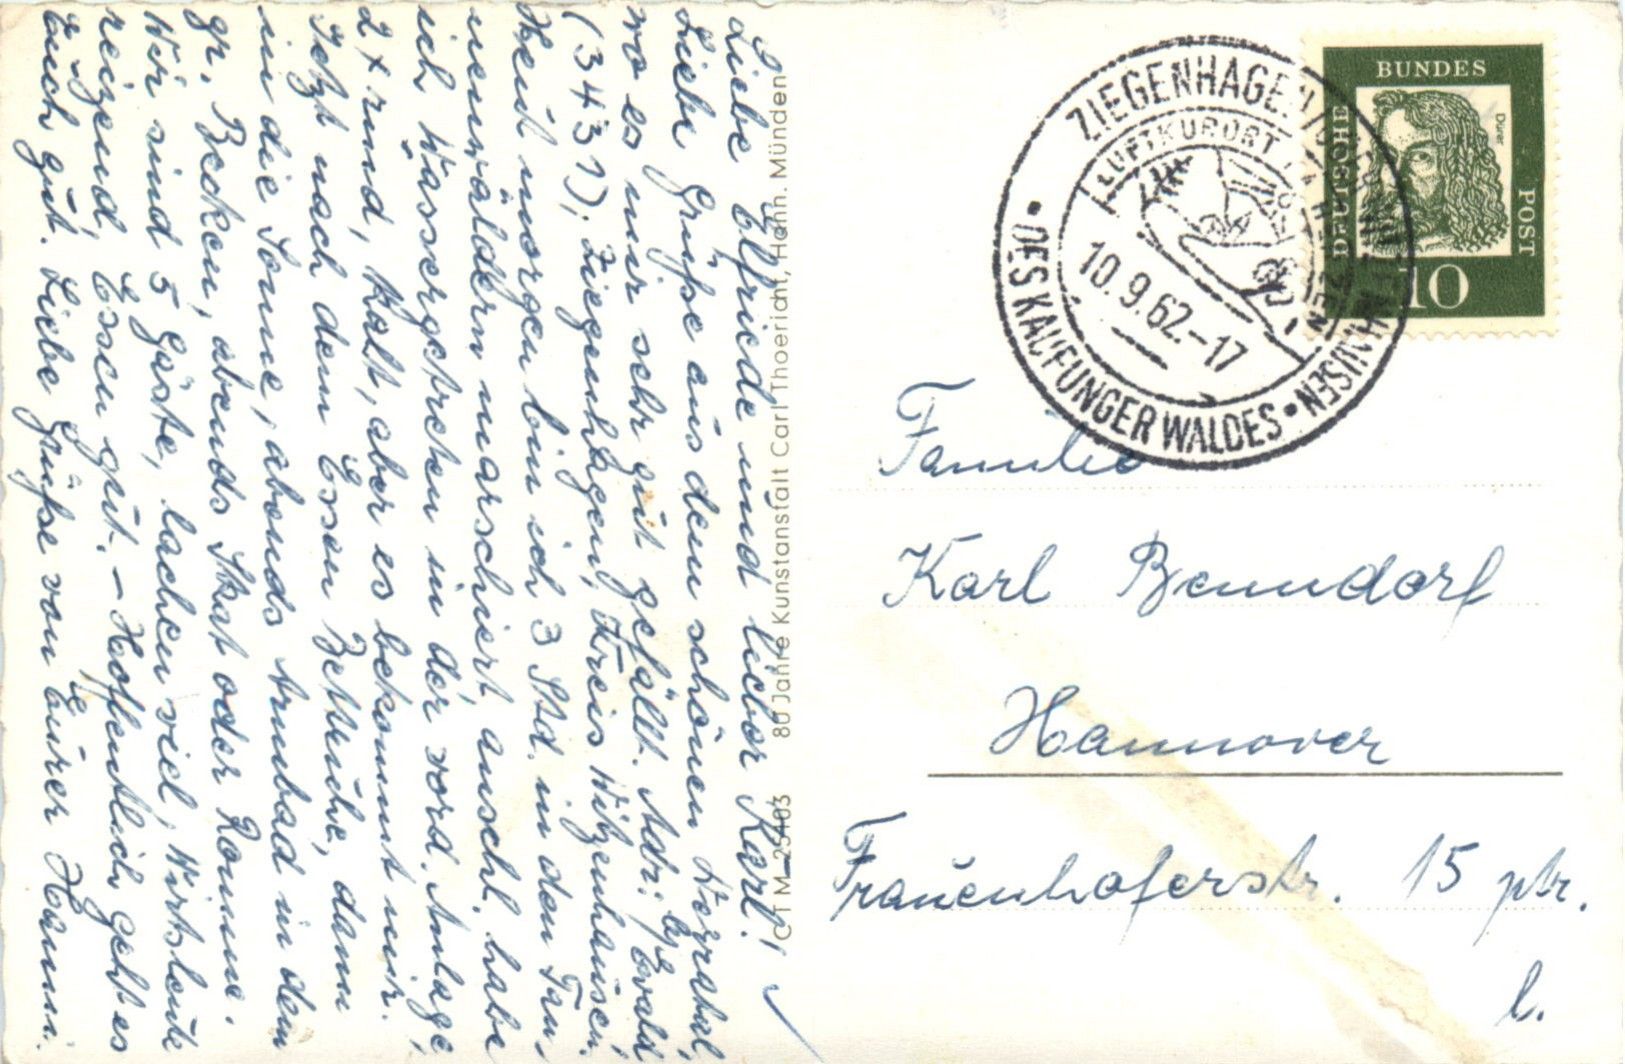 Liebe Elfriede und lieber Karl!
Liebe Grüße aus dem schönen Werratal,
wo es mir sehr gut gefällt. Adr.: b/ Ewald
(3431), Ziegenhagen, Kreis Witzenhausen.
Heut morgen bin ich 3 Std. in den Tan-
nenwäldern marschiert, anschl. habe
ich Wassergetreten in der vord. Anlage,
2x rund, kalt, aber es bekommt mir.
Jetzt nach dem Essen Bettruhe, dann
in die Sonne, abends Armbad in dem
gr. Becken, abends Skat oder Romme.
Wir sind 5 Gäste, lachen viel, Wirtsleute
reizend, Essen gut. – Hoffentlich geht es
Euch gut. Liebe Grüße von Eurer Hanni.
CTM 25403 80 Jahre Kunstanstalt Carl Thoericht, Hann. Münden
ZIEGENHAGEN
WITZENHAUSEN
LUFTKURORT
10.9.62.-17
DES KAUFUNGER WALDES
BUNDES
POST
DEUTSCHE
Dürer
10
Familie
Karl Benndorf
Hannover
Frauenhoferstr. 15 ptr.
l.